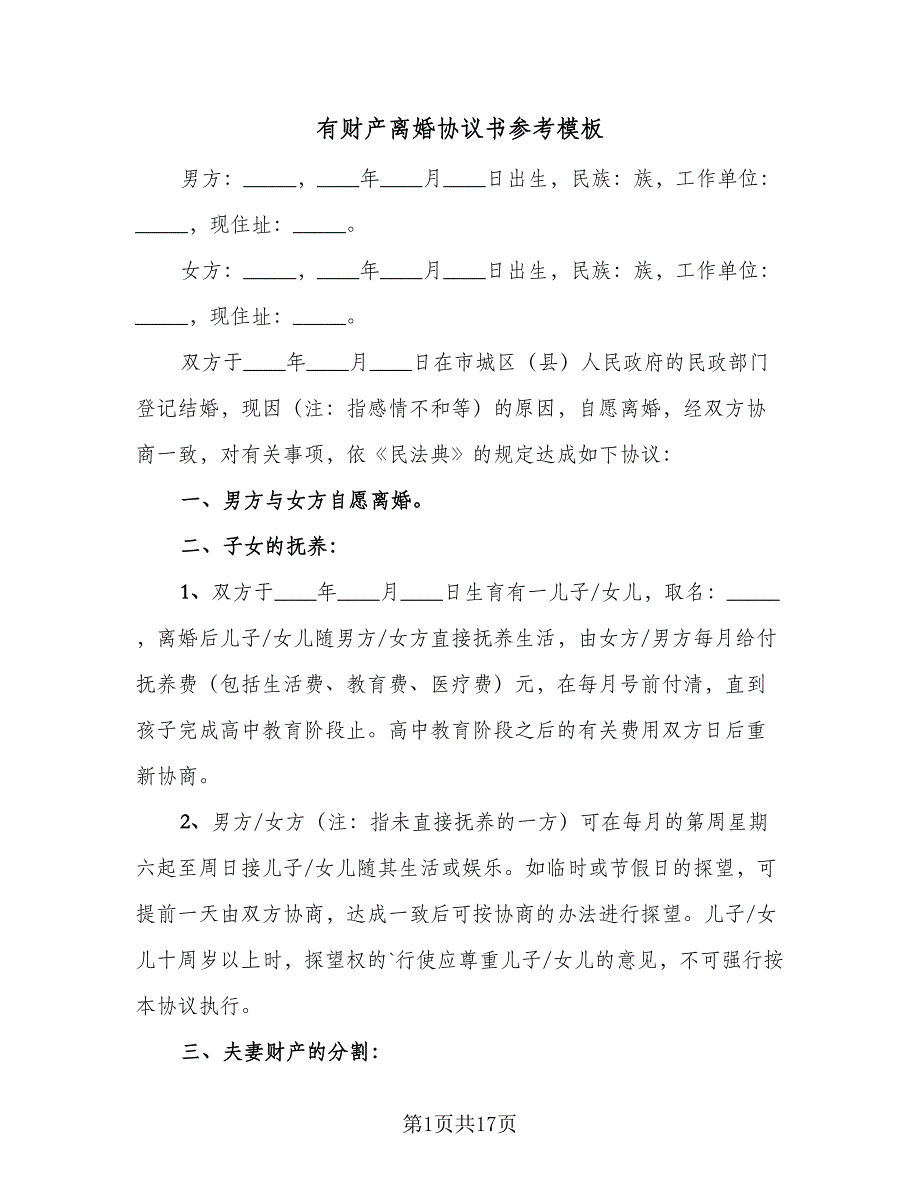 有财产离婚协议书参考模板
男方：_____，____年____月____日出生，民族：族，工作单位：
_____，现住址：_____。
女方：_____，____年____月____日出生，民族：族，工作单位：
_____，现住址：_____。
双方于____年____月____日在市城区（县）人民政府的民政部门
登记结婚，现因（注：指感情不和等）的原因，自愿离婚，经双方协
商一致，对有关事项，依《民法典》的规定达成如下协议：
一、男方与女方自愿离婚。
二、子女的抚养：
1、双方于____年____月____日生育有一儿子/女儿，取名：_____
，离婚后儿子/女儿随男方/女方直接抚养生活，由女方/男方每月给付
抚养费（包括生活费、教育费、医疗费）元，在每月号前付清，直到
孩子完成高中教育阶段止。高中教育阶段之后的有关费用双方日后重
新协商。
2、男方/女方（注：指未直接抚养的一方）可在每月的第周星期
六起至周日接儿子/女儿随其生活或娱乐。如临时或节假日的探望，可
提前一天由双方协商，达成一致后可按协商的办法进行探望。儿子/女
儿十周岁以上时，探望权的`行使应尊重儿子/女儿的意见，不可强行按
本协议执行。
三、夫妻财产的分割：
第1页共17页